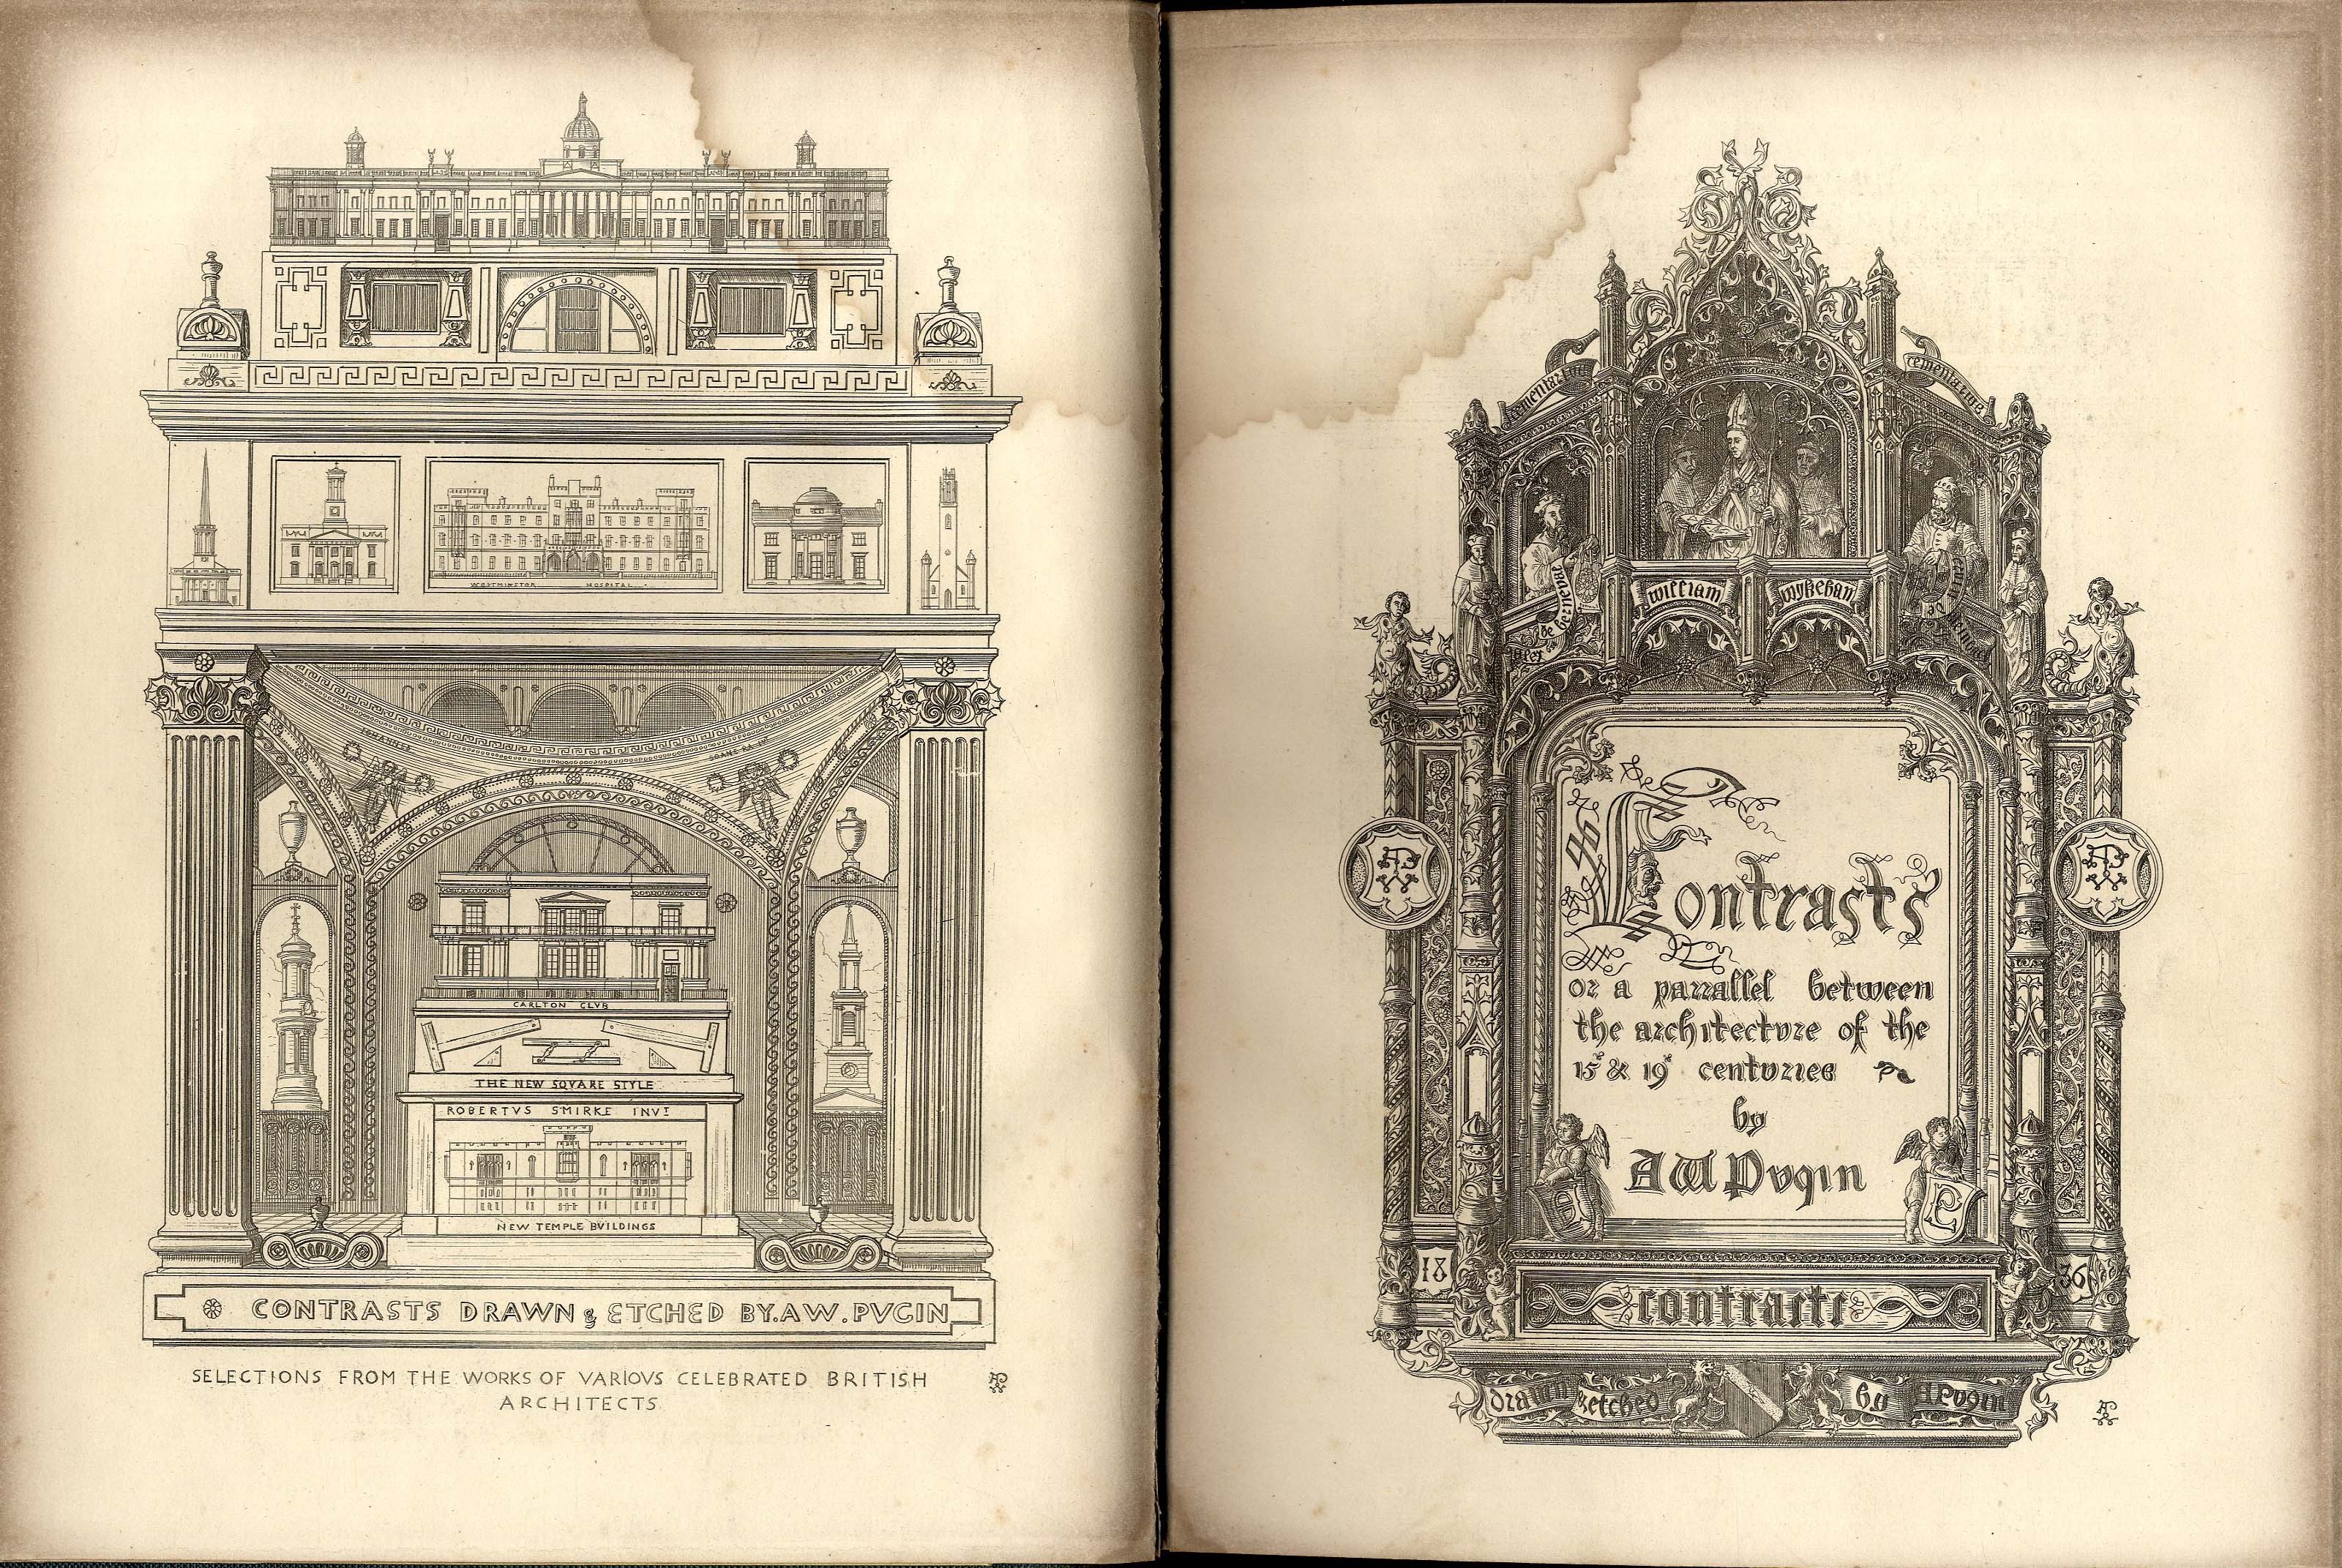 WESTMINSTOR HOSPITAL
IOHANNES
SOANE
CARLTON CLVB
THE NEW SQVARE STYLE
ROBERTVS SMIRKE INVT
NEW TEMPLE BVILDINGS
CONTRASTS DRAWN & ETCHED BY. A W. PVGIN
SELECTIONS FROM THE WORKS OF VARIOVS CELEBRATED BRITISH
ARCHITECTS
cementarius
cementarius
william wykeham
alex de berneval
erwin de
Contrasts
or a parrallel between
the architectvre of the
15 & 19 centvries
by
A W Pvgin
18 36
contrasts
drawn & etched by A Pvgin